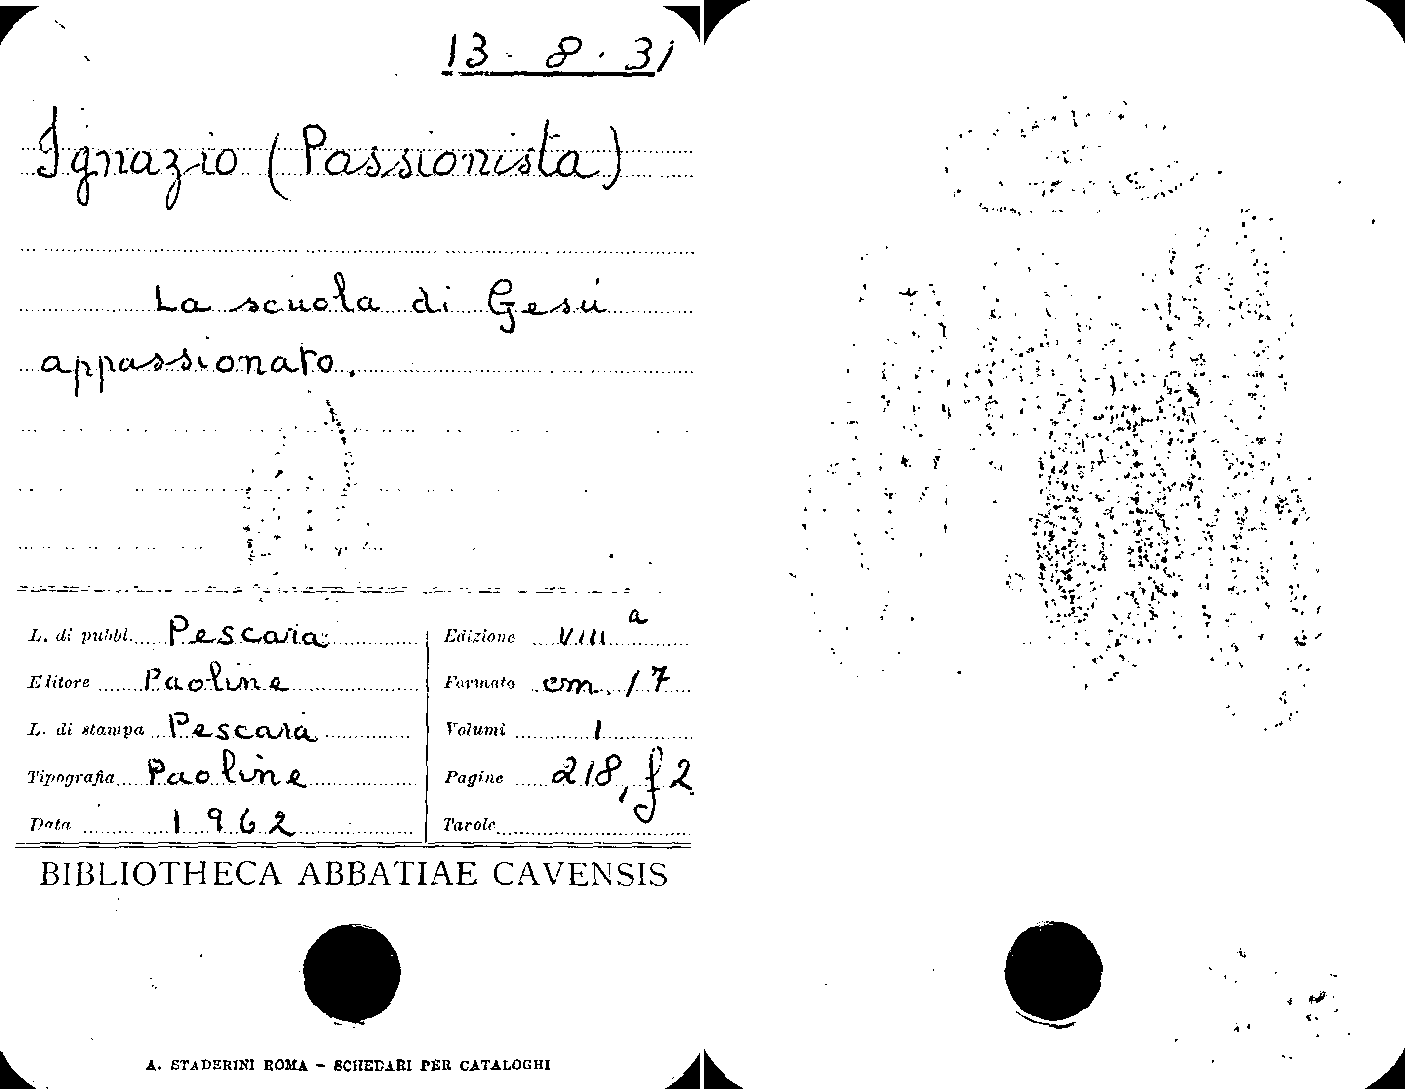 13 - 8 - 31
Ignazio (Passionista)
La scuola di Gesù
appassionato.
L. di pubbl. Pescara
Editore Paoline
L. di stampa Pescara
Tipografia Paoline
Data 1962
Edizione VIII a
Formato cm. 17
Volumi 1
Pagine 218, f 2
Tavole
BIBLIOTHECA ABBATIAE CAVENSIS
A. STADERINI ROMA - SCHEDARI PER CATALOGHI